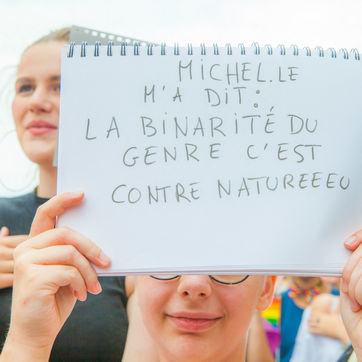 MICHEL.LE
M'A DIT:
LA BINARITÉ DU
GENRE C'EST
CONTRE NATUREEEU